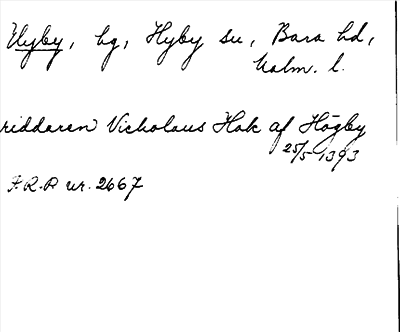 Hyby, by, Hyby sn, Bara hd,
Malm. l.
riddaren Vicholaus Hak af Högby
25/5 1393
F.R.P nr. 2667